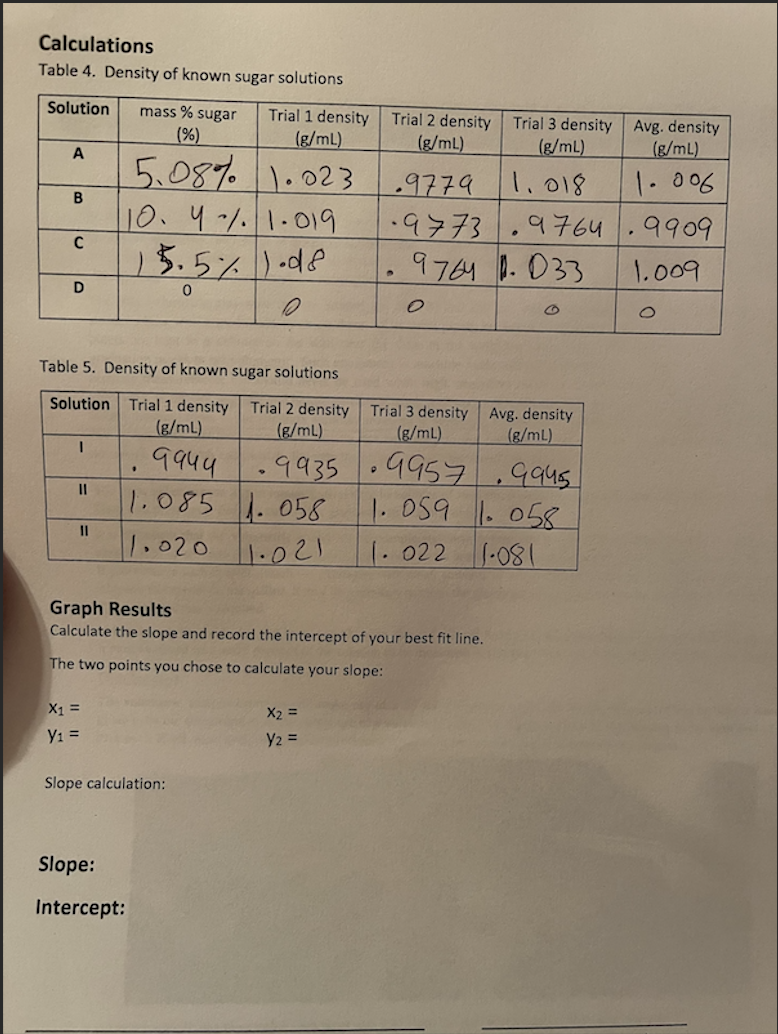 Calculations
Table 4. Density of known sugar solutions
Solution mass % sugar (%) Trial 1 density (g/mL) Trial 2 density (g/mL) Trial 3 density (g/mL) Avg. density (g/mL)
A 5.08% 1.023 .9779 1.018 1.006
B 10.4% 1.019 .9773 .9764 .9909
C 15.5% .9764 1.033 1.009
D 0 0 0 0 0
Table 5. Density of known sugar solutions
Solution Trial 1 density (g/mL) Trial 2 density (g/mL) Trial 3 density (g/mL) Avg. density (g/mL)
I .9944 .9935 .9957 .9945
II 1.085 1.058 1.059 1.058
II 1.020 1.021 1.022 1.081
Graph Results
Calculate the slope and record the intercept of your best fit line.
The two points you chose to calculate your slope:
x₁ = x₂ =
y₁ = y₂ =
Slope calculation:
Slope:
Intercept: